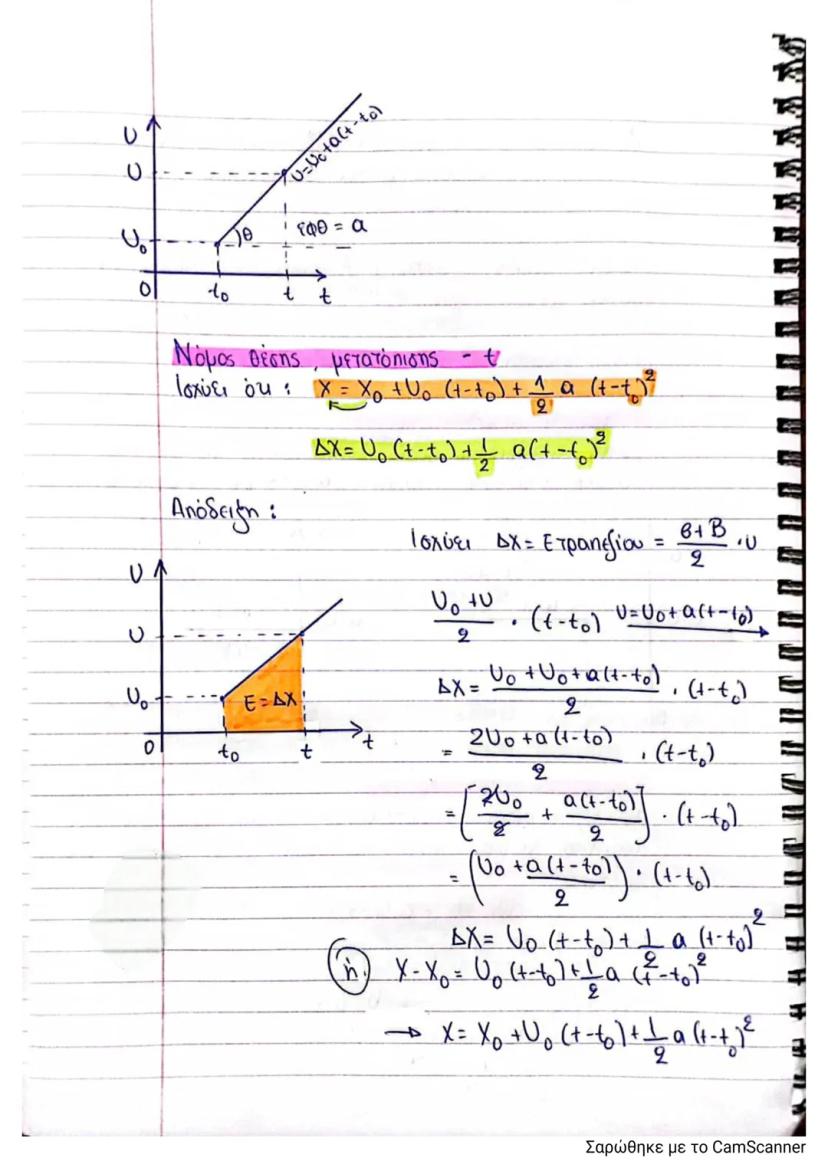 υ
υ
υ=υ₀+a(t-t₀)
υ₀
θ
εφθ = a
0
t₀
t
t
Νόμος θέσης, μετατόπισης - t
Ισχύει ότι : x = x₀ + υ₀ (t-t₀) + 1/2 a (t-t₀)²
Δx = υ₀ (t-t₀) + 1/2 a(t-t₀)²
Απόδειξη :
Ισχύει Δx = Ε τραπεζίου = β+Β/2 · υ
υ
υ
υ₀
E = Δx
0
t₀
t
t
υ₀+υ/2 · (t-t₀) υ=υ₀+a(t-t₀)→
Δx = υ₀+υ₀+a(t-t₀)/2 · (t-t₀)
= 2υ₀+a(t-t₀)/2 · (t-t₀)
= [2υ₀/2 + a(t-t₀)/2] · (t-t₀)
= (υ₀ + a(t-t₀)/2) · (t-t₀)
Δx = υ₀ (t-t₀) + 1/2 a (t-t₀)²
ή. x-x₀ = υ₀ (t-t₀) + 1/2 a (t-t₀)²
→ x = x₀ + υ₀ (t-t₀) + 1/2 a (t-t₀)²
Σαρώθηκε με το CamScanner